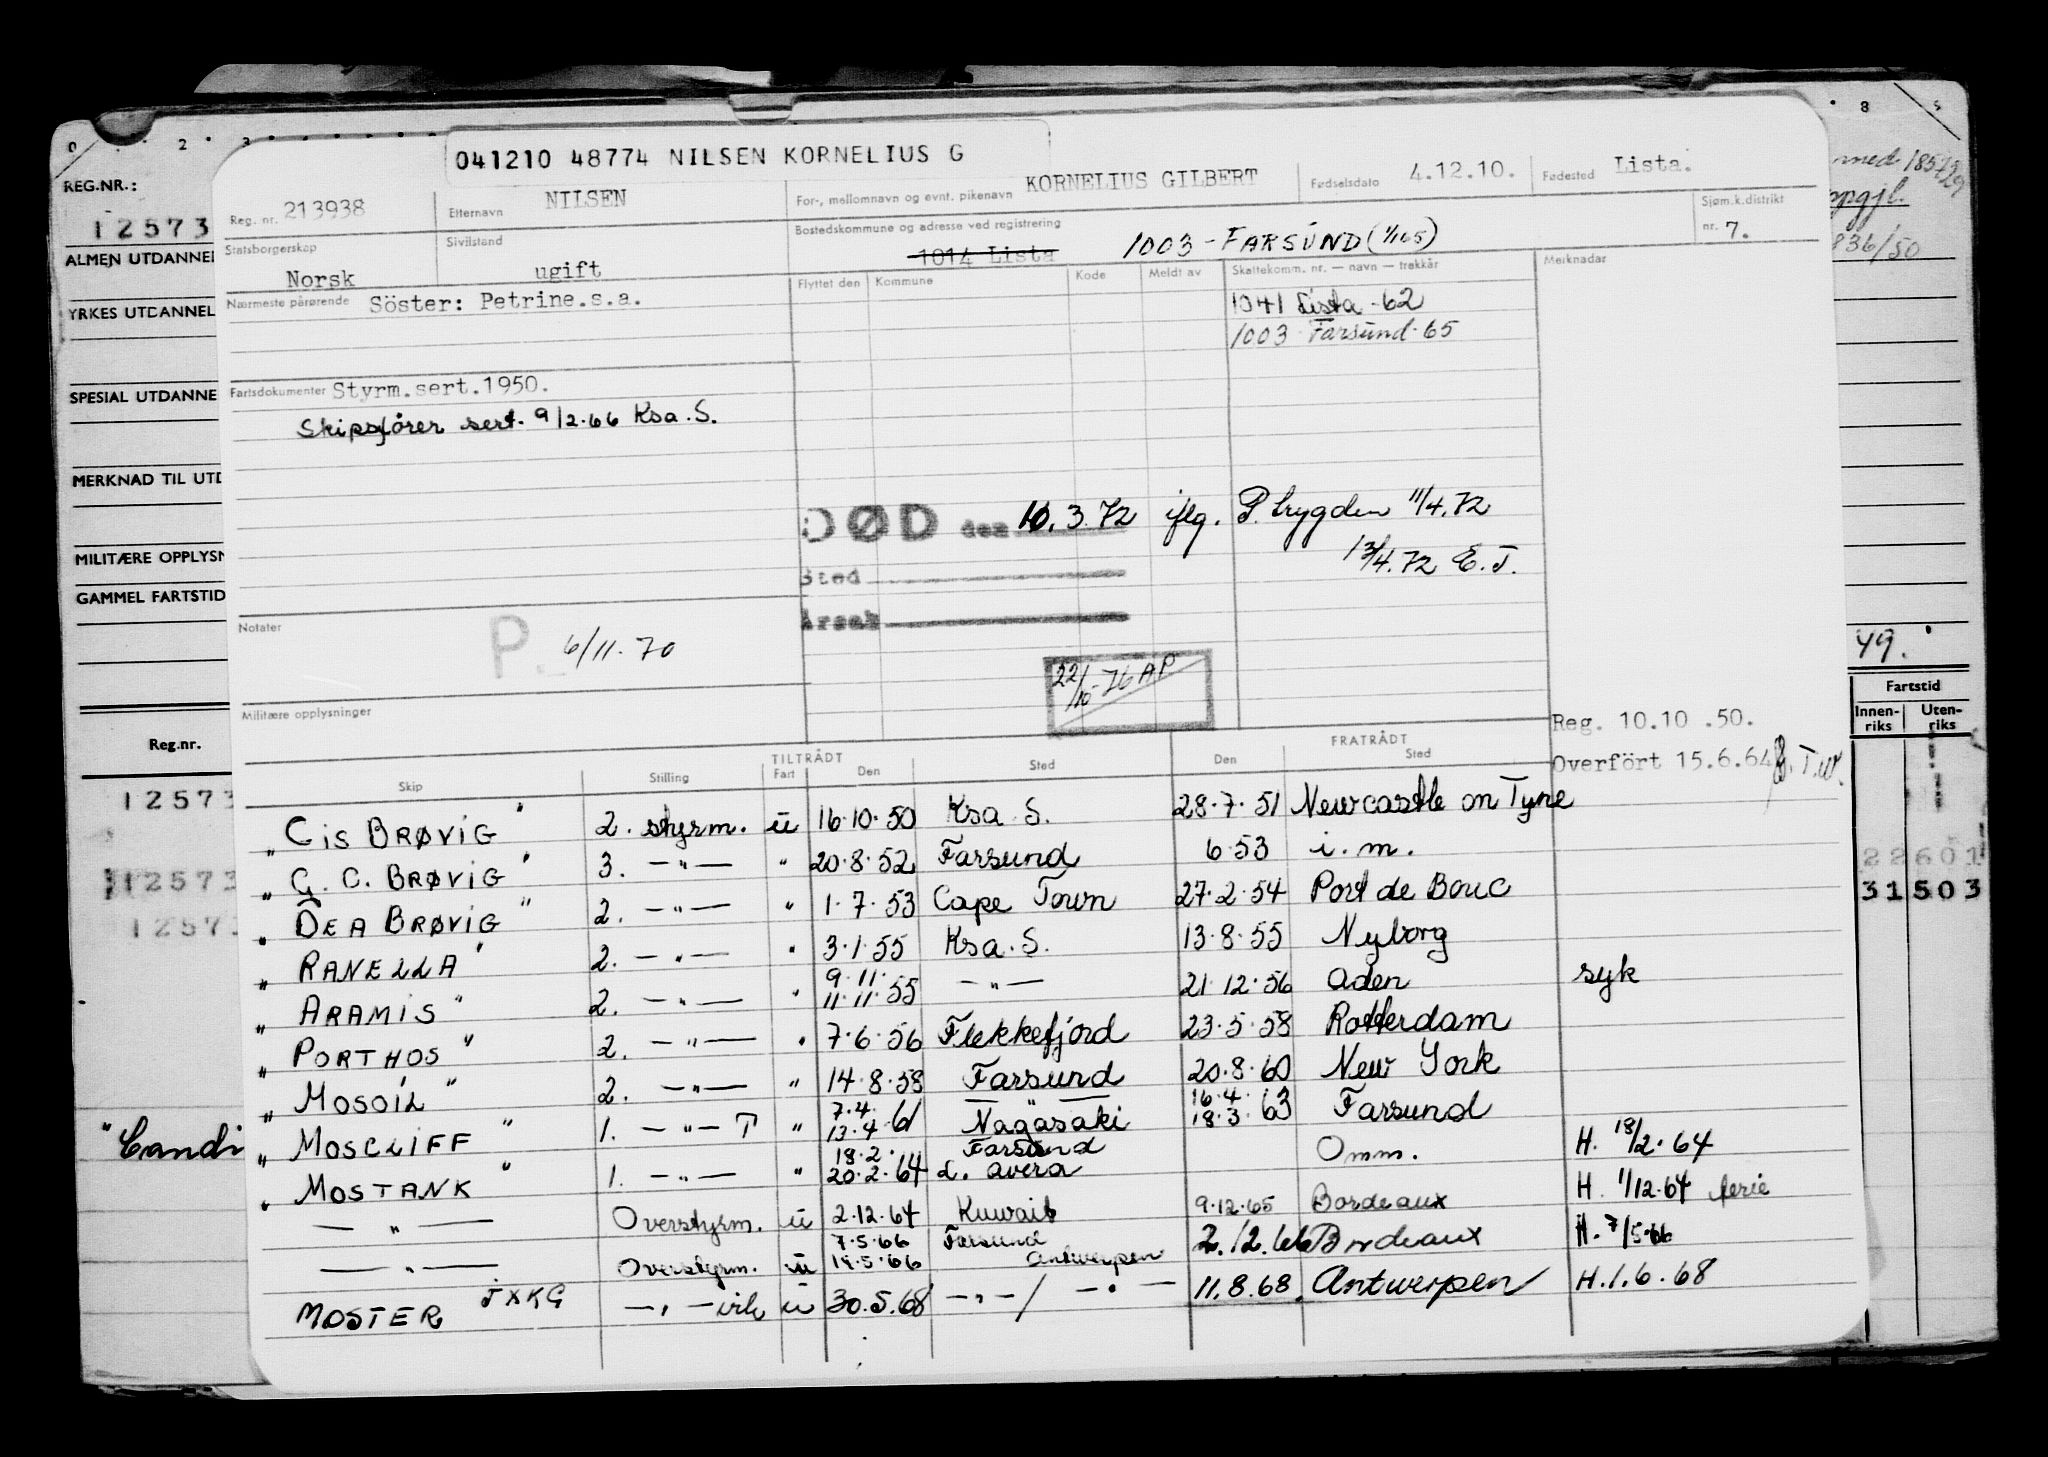 041210 48774 NILSEN KORNELIUS G
Reg. nr. 213938 Etternavn NILSEN For-, mellomnavn og evnt. pikenavn KORNELIUS GILBERT Fødselsdato 4.12.10. Fødested Lista.
Statsborgerskap Norsk Sivilstand ugift Bostedskommune og adresse ved registrering 1014 Lista 1003 - FARSUND (1/1 65) Sjøm.k.distrikt nr. 7.
Nærmeste pårørende Söster: Petrine.s.a. Flyttet den Kommune Kode Meldt av Skattekomm. nr. — navn — trekkår Merknader
1041 Lista -62
1003 Farsund-65
Fartsdokumenter Styrm.sert.1950.
Skipsfører sert. 9/2.66 Ksa. S.
DØD den 10. 3. 72 iflg. P. trygden 11/4.72
13/4.72 E.T.
Sted
Årsak
Notater P. 6/11. 70
22/10-76 AP
Militære opplysninger
Reg. 10.10 .50.
Overfört 15.6.64
TILTRÅDT FRATRÅDT
Skip Stilling Fart Den Sted Den Sted
" Cis BRØVIG " 2. styrm. u 16.10.50 Ksa. S. 28.7.51 Newcastle on Tyne
" G. C. BRØVIG " 3. —"— " 20.8.52 Farsund 6.53 i. m.
" DEA BRØVIG " 2. —"— " 1.7.53 Cape Town 27.2.54 Port de Bouc
" RANELLA " 2. —"— " 3.1.55 Ksa. S. 13.8.55 Nyborg
" ARAMIS " 2. —"— " 9.11. 11.11.55 —"— 21.12.56 Aden syk
" PORTHOS " 2. —"— " 7.6.56 Flekkefjord 23.5.58 Rotterdam
" MOSOIL " 2. —"— " 14.8.58 Farsund 20.8.60 New York
" MOSCLIFF " 1. —"— T " 7.4. 13.4.61 Nagasaki 16.4. 18.3.63 Farsund
" MOSTANK " 1. —"— " 18.2. 20.2.64 Farsund L. avera Omm. H. 18/2.64
—"— Overstyrm. u 2.12.64 Kuwait 9.12.65 Bordeaux H. 1/12.64 ferie
—"— Overstyrm. u 7.5.66 18.5.66 Farsund Antwerpen 2.12.66 Bordeaux H. 7/5.66
MOSTER JXKG —"— u 30.5.68 —"—/ —"— 11.8.68. Antwerpen H.1.6.68
REG.NR.:
12573
ALMEN UTDANNEL
YRKES UTDANNEL
SPESIAL UTDANNE
MERKNAD TIL UTD
MILITÆRE OPPLYSN
GAMMEL FARTSTID
Reg.nr.
12573
12573
12573
"Candi
836/50
49.
Fartstid
Innen-riks Uten-riks
22601
31503